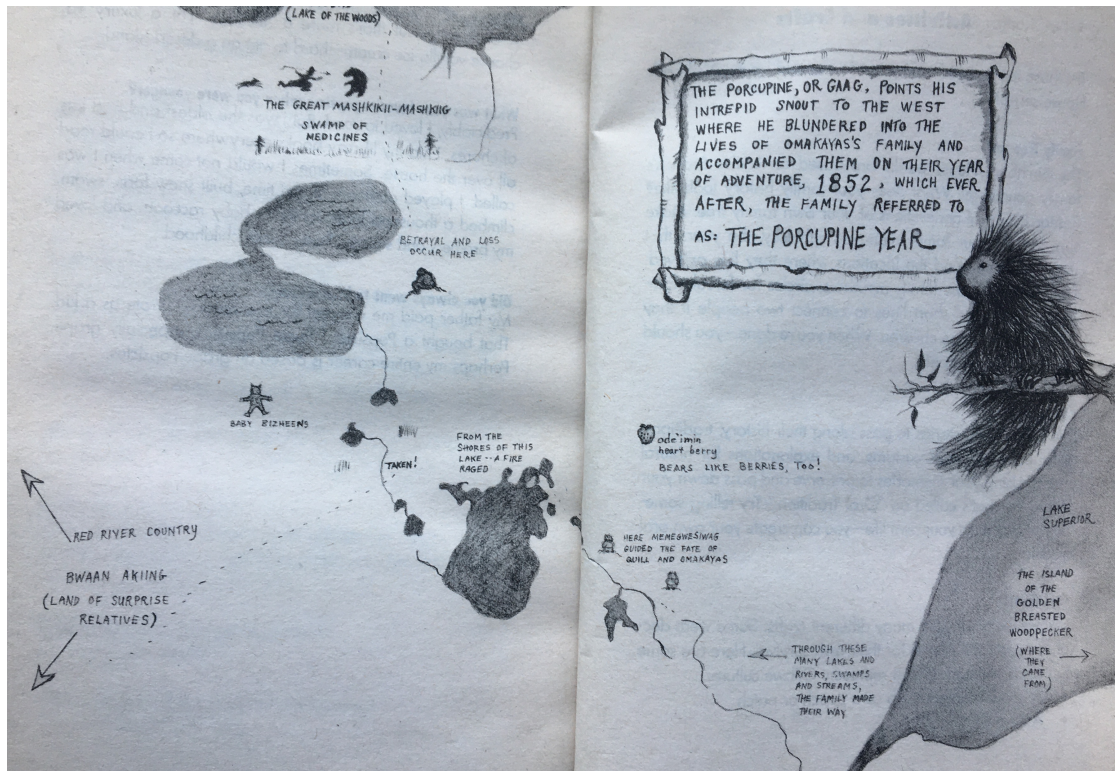 (LAKE OF THE WOODS)
THE GREAT MASHKIKII-MASHKIIG
SWAMP OF
MEDICINES
BETRAYAL AND LOSS
OCCUR HERE
BABY BIZHEENS
TAKEN!
FROM THE
SHORES OF THIS
LAKE -- A FIRE
RAGED
RED RIVER COUNTRY
BWAAN AKIING
(LAND OF SURPRISE
RELATIVES)
THE PORCUPINE, OR GAAG, POINTS HIS
INTREPID SNOUT TO THE WEST
WHERE HE BLUNDERED INTO THE
LIVES OF OMAKAYAS'S FAMILY AND
ACCOMPANIED THEM ON THEIR YEAR
OF ADVENTURE, 1852, WHICH EVER
AFTER, THE FAMILY REFERRED TO
AS: THE PORCUPINE YEAR
ode'imin
heart berry
BEARS LIKE BERRIES, TOO!
HERE MEMEGWESIWAG
GUIDED THE FATE OF
QUILL AND OMAKAYAS
THROUGH THESE
MANY LAKES AND
RIVERS, SWAMPS
AND STREAMS,
THE FAMILY MADE
THEIR WAY
LAKE
SUPERIOR
THE ISLAND
OF THE
GOLDEN
BREASTED
WOODPECKER
(WHERE
THEY
CAME
FROM)